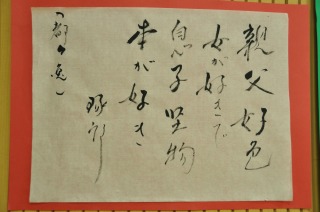 親父好色
女が好きで
息子堅物
本が好き
(都々逸)